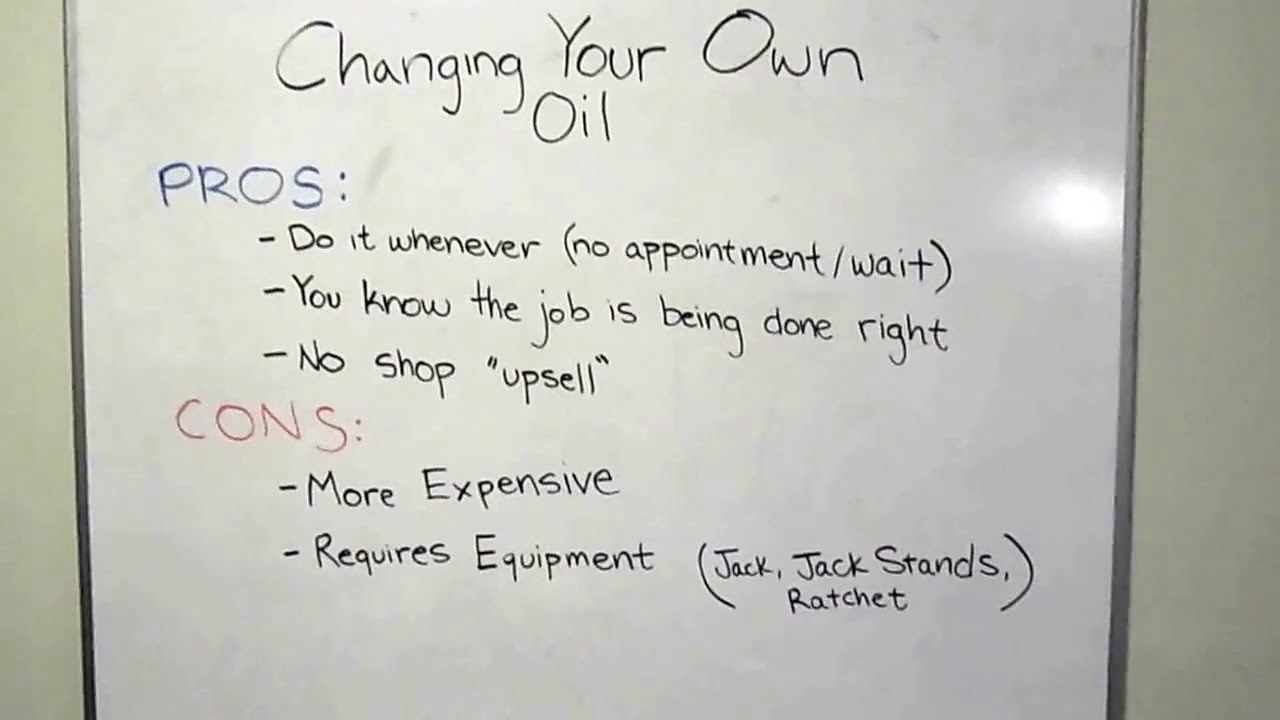 Changing Your Own
Oil
PROS:
- Do it whenever (no appointment/wait)
- You know the job is being done right
- No shop "upsell"
CONS:
- More Expensive
- Requires Equipment (Jack, Jack Stands,)
Ratchet